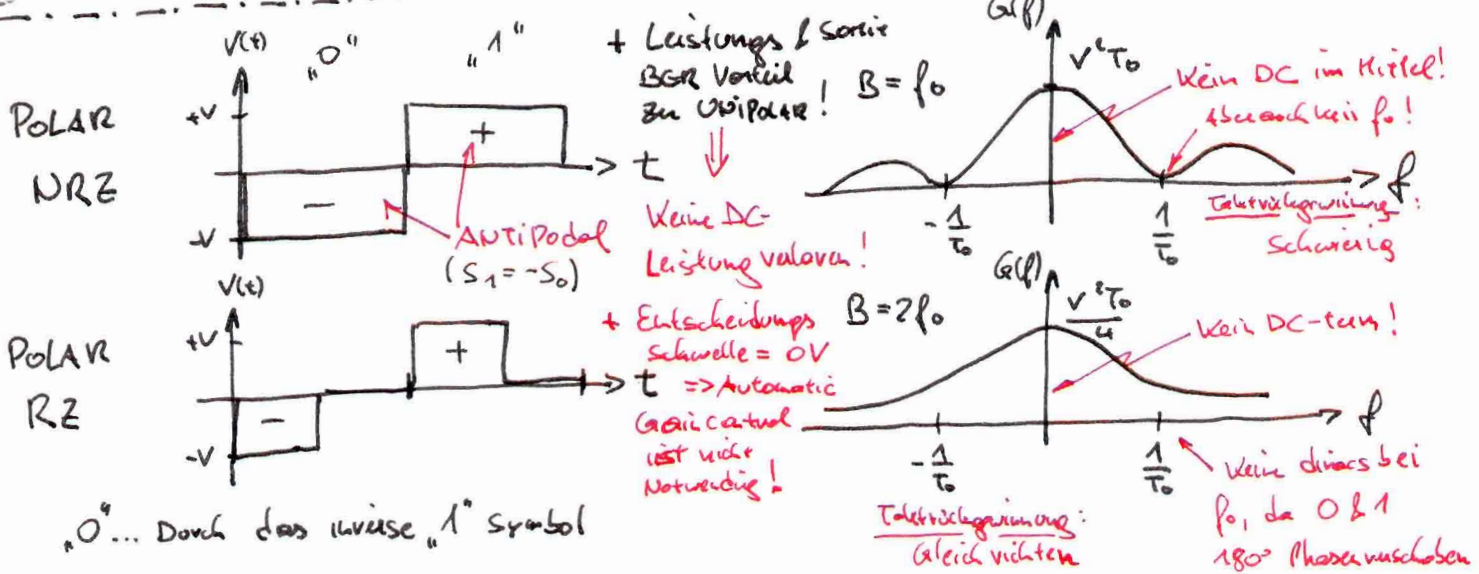 POLAR
NRZ
V(t)
„0“
„1“
+V
-V
+
-
t
ANTIPodal
(S₁ = -S₀)
+ Leistungs & somit
BER Vorteil
zu UNIPOLAR!
⇓
Keine DC-
Leistung verloren!
B = f₀
G(f)
V²T₀
Kein DC im Mittel!
Aber auch kein f₀!
f
-1/T₀
1/T₀
Taktrückgewinnung:
Schwierig
POLAR
RZ
V(t)
+V
-V
+
-
t
+ Entscheidungs
schwelle = 0V
=> Automatic
Gain Control
ist nicht
Notwendig!
B = 2f₀
G(f)
V²T₀/4
Kein DC-term!
f
-1/T₀
1/T₀
Keine diracs bei
f₀, da 0 & 1
180° Phasenverschoben
Taktrückgewinnung:
Gleichrichten
„0“... Durch das inverse „1“ Symbol